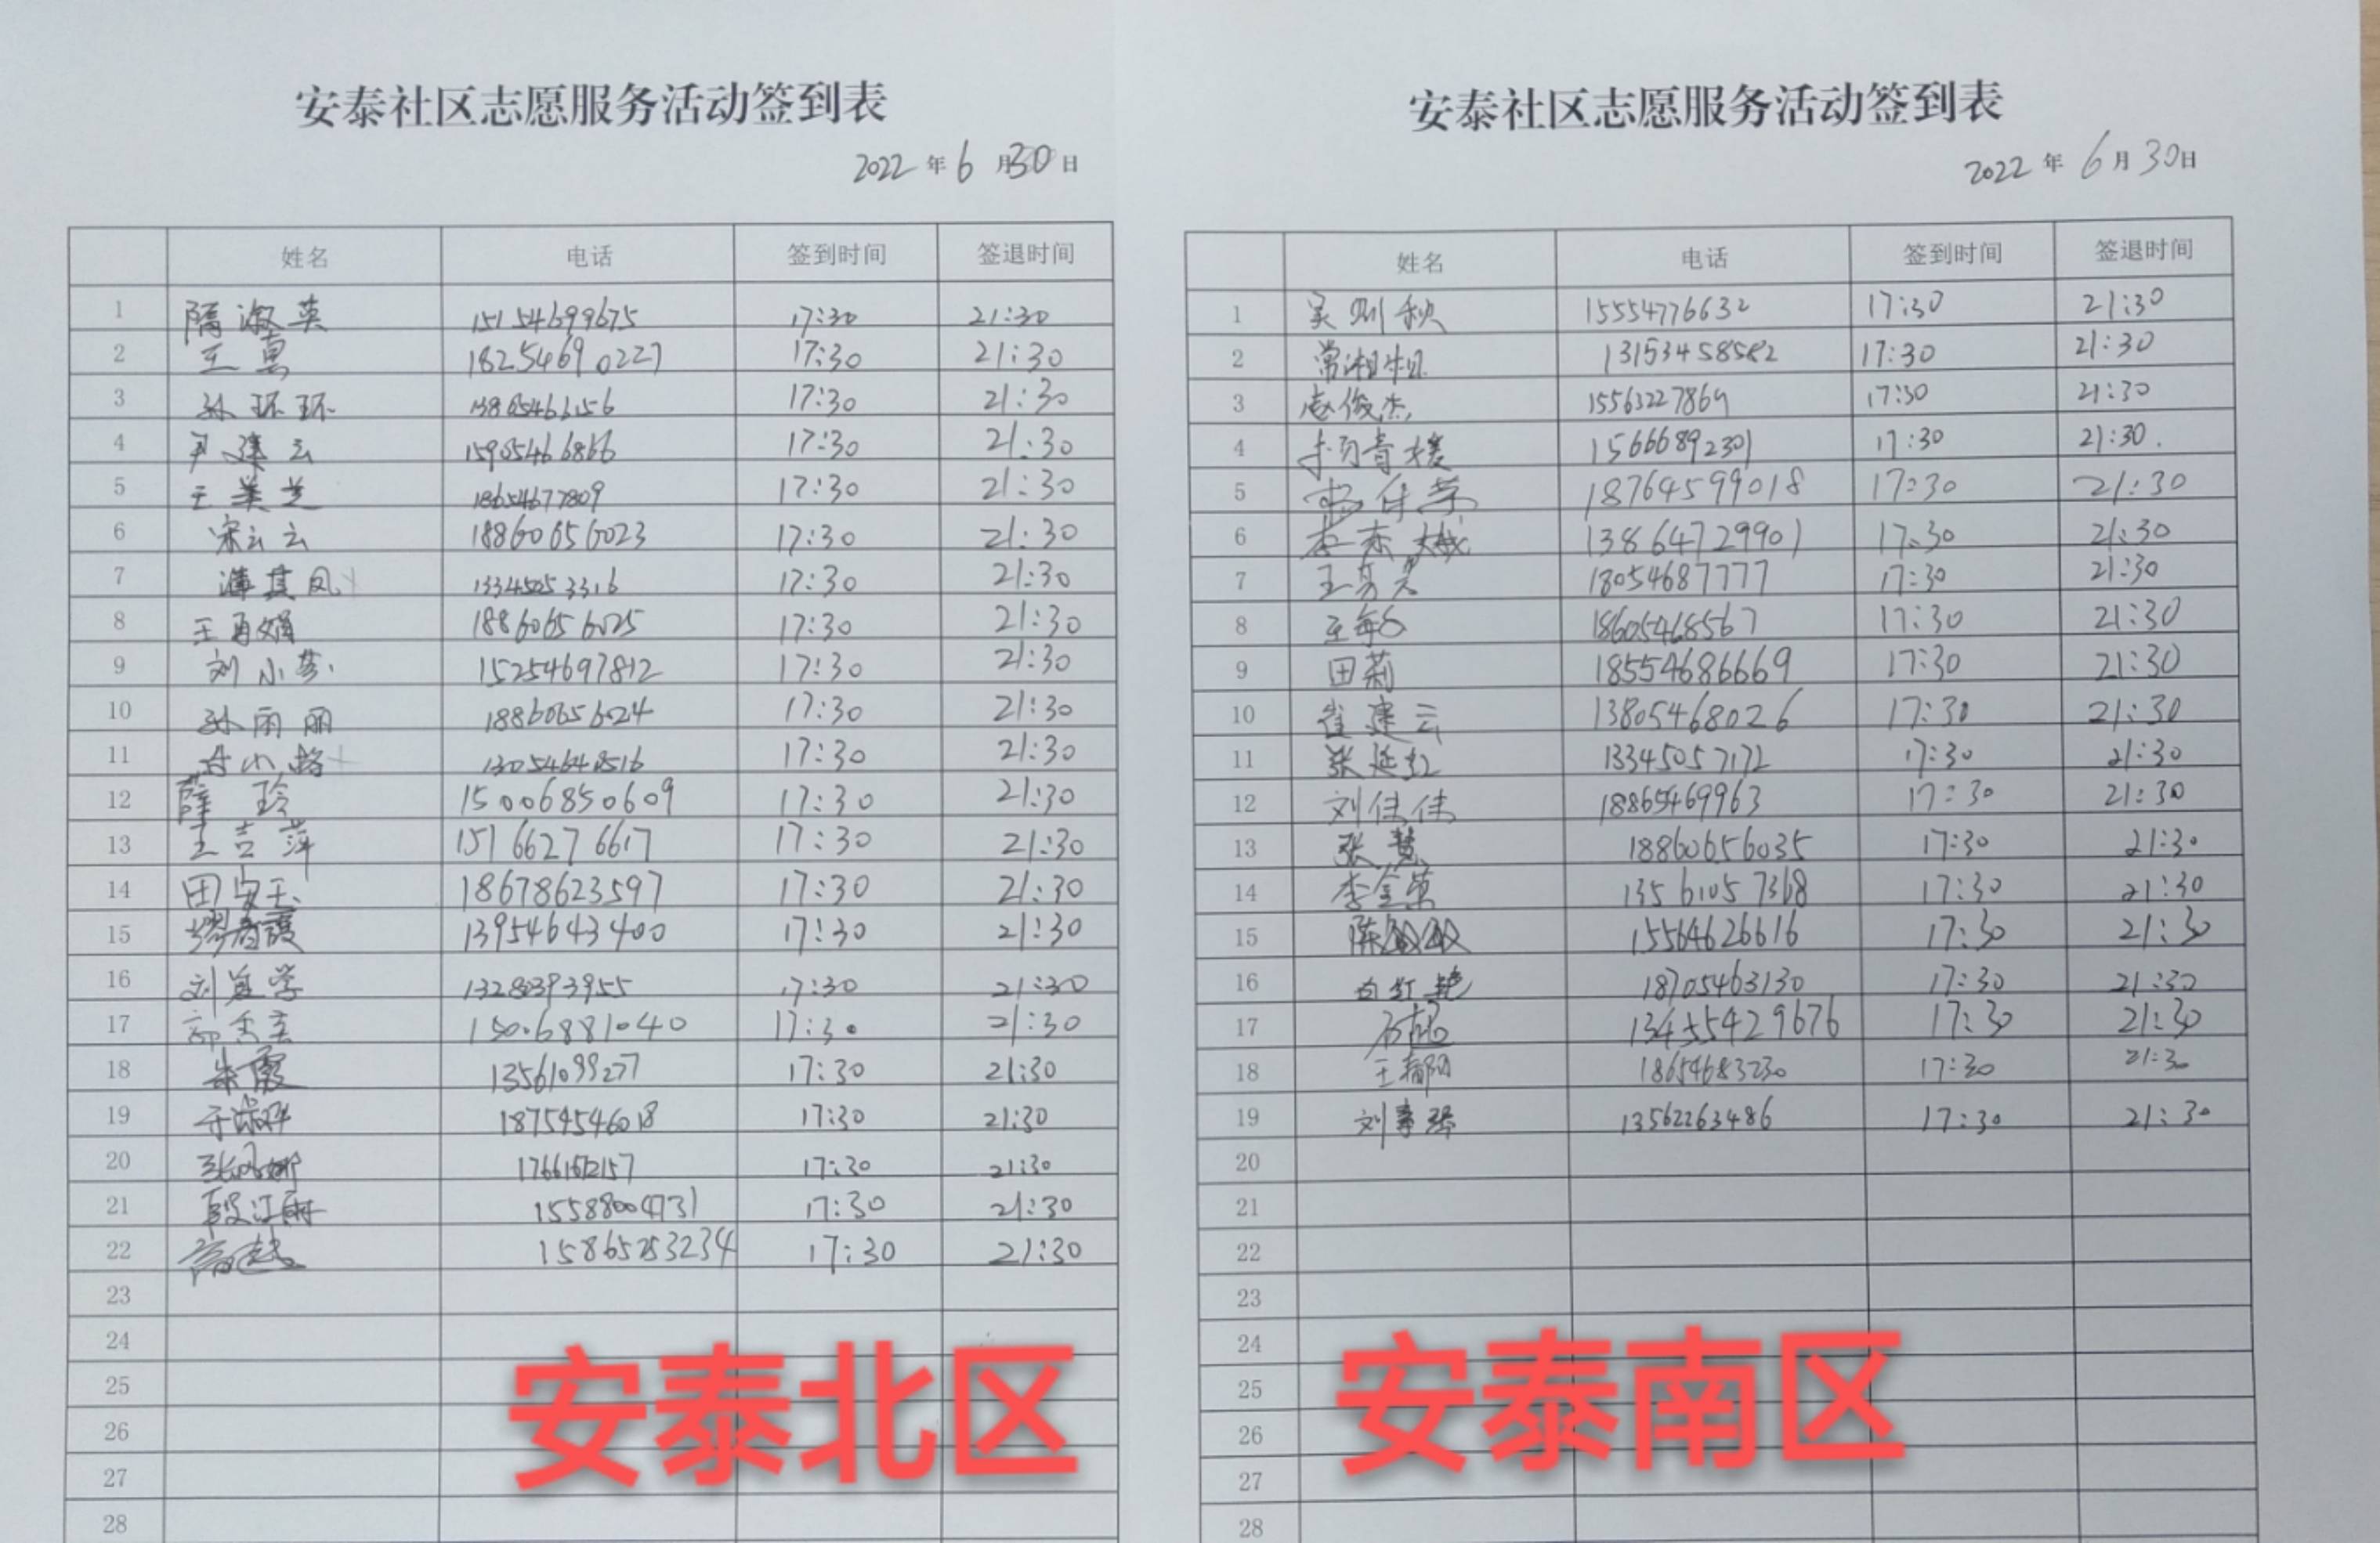 安泰社区志愿服务活动签到表
2022年6月30日
姓名 电话 签到时间 签退时间
1 隋淑英 15154699675 17:30 21:30
2 王惠 18254690227 17:30 21:30
3 孙环环 17:30 21:30
4 尹建云 15905466866 17:30 21:30
5 王美芝 18654677809 17:30 21:30
6 宋云云 18860656023 17:30 21:30
7 薄其凤 13345053316 17:30 21:30
8 王再娟 18860656025 17:30 21:30
9 刘小芬 15254697812 17:30 21:30
10 孙丽丽 18860656024 17:30 21:30
11 17:30 21:30
12 薛玲 15006850609 17:30 21:30
13 王吉萍 15166276617 17:30 21:30
14 田安玉 18678623597 17:30 21:30
15 13954643400 17:30 21:30
16 13280393955 17:30 21:30
17 15006881040 17:30 21:30
18 朱霞 13561099277 17:30 21:30
19 18754546018 17:30 21:30
20 17:30 21:30
21 段江丽 15588004731 17:30 21:30
22 17:30 21:30
23
24
25
26
27
28
安泰北区
安泰社区志愿服务活动签到表
2022年6月30日
姓名 电话 签到时间 签退时间
1 吴则秋 15554776632 17:30 21:30
2 常湘粗 13153458582 17:30 21:30
3 赵俊杰 15563227869 17:30 21:30
4 15666892301 17:30 21:30.
5 18764599018 17:30 21:30
6 13864729901 17:30 21:30
7 18054687777 17:30 21:30
8 18605468567 17:30 21:30
9 田莉 18554686669 17:30 21:30
10 崔建云 13805468026 17:30 21:30
11 张延红 13345057172 17:30 21:30
12 刘佳佳 18865469963 17:30 21:30
13 张慧 18860656035 17:30 21:30
14 李金英 17:30 21:30
15 陈敏敏 15564626616 17:30 21:30
16 白红艳 18705463130 17:30 21:30
17 134555429676 17:30 21:30
18 18654683230 17:30 21:30
19 13562263486 17:30 21:30
20
21
22
23
24
25
26
27
28
安泰南区